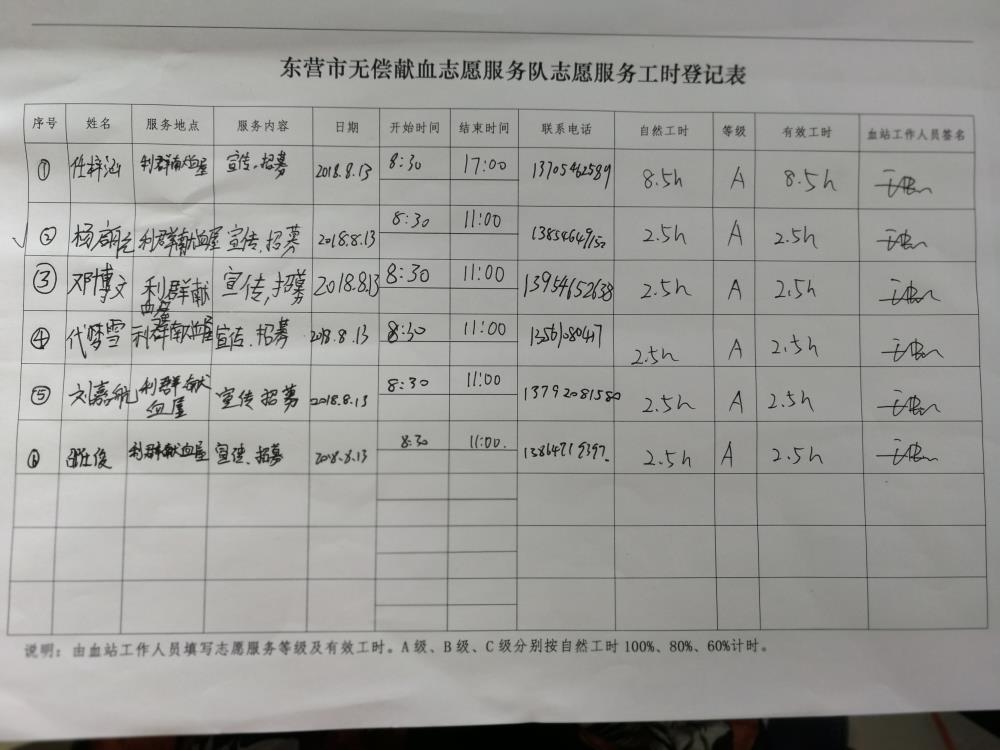 东营市无偿献血志愿服务队志愿服务工时登记表
序号 姓名 服务地点 服务内容 日期 开始时间 结束时间 联系电话 自然工时 等级 有效工时 血站工作人员签名
① 任梓涵 利群献血屋 宣传、招募 2018.8.13 8:30 17:00 13705462589 8.5h A 8.5h
② 利群献血屋 宣传、招募 2018.8.13 8:30 11:00 13854649152 2.5h A 2.5h
③ 邓博文 利群献血屋 宣传,招募 2018.8.13 8:30 11:00 13954652638 2.5h A 2.5h
④ 代梦雪 利群献血屋 宣传、招募 2018.8.13 8:30 11:00 2.5h A 2.5h
⑤ 刘嘉航 利群献血屋 宣传 招募 2018.8.13 8:30 11:00 13792081580 2.5h A 2.5h
⑥ 利群献血屋 宣传、招募 2018.8.13 8:30 11:00. 2.5h A 2.5h
说明:由血站工作人员填写志愿服务等级及有效工时。A级、B级、C级分别按自然工时100%、80%、60%计时。